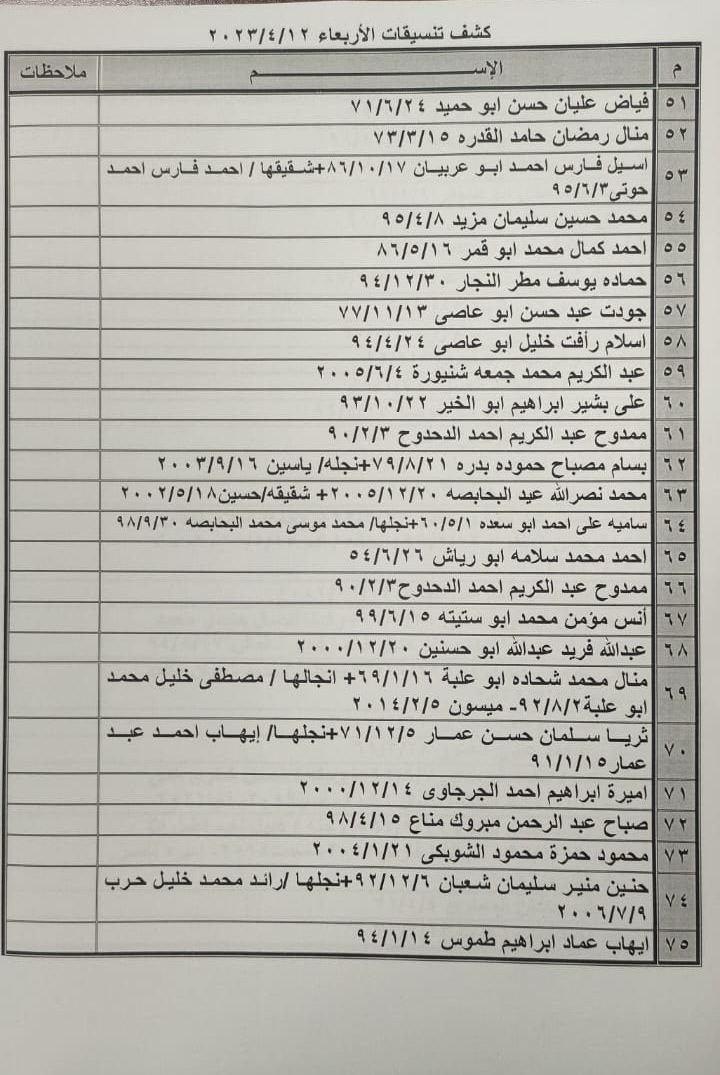 كشف تنسيقات الأربعاء ٢٠٢٣/٤/١٢
م الإســـــــم ملاحظات
٥١ فياض عليان حسن ابو حميد ٧١/٦/٢٤
٥٢ منال رمضان حامد القدره ٧٣/٣/١٥
٥٣ اسيل فارس احمد ابو عربيان ٨٦/١٠/١٧+شقيقها / احمد فارس احمد
حوتى٩٥/٦/٣
٥٤ محمد حسين سليمان مزيد ٩٥/٤/٨
٥٥ احمد كمال محمد ابو قمر ٨٦/٥/١٦
٥٦ حماده يوسف مطر النجار ٩٤/١٢/٣٠
٥٧ جودت عبد حسن ابو عاصى ٧٧/١١/١٣
٥٨ اسلام رأفت خليل ابو عاصى ٩٤/٤/٢٤
٥٩ عبد الكريم محمد جمعه شنيورة ٢٠٠٥/٦/٤
٦٠ على بشير ابراهيم ابو الخير ٩٣/١٠/٢٢
٦١ ممدوح عبد الكريم احمد الدحدوح ٩٠/٢/٣
٦٢ بسام مصباح حموده بدره ٧٩/٨/٢١+نجله/ ياسين ٢٠٠٣/٩/١٦
٦٣ محمد نصرالله عيد البحابصه ٢٠٠٥/١٢/٢٠+ شقيقه/حسين٢٠٠٢/٥/١٨
٦٤ ساميه على احمد ابو سعده ٦٠/٥/١+نجلها/ محمد موسى محمد البحابصه ٩٨/٩/٣٠
٦٥ احمد محمد سلامه ابو رياش ٥٤/٦/٢٦
٦٦ ممدوح عبد الكريم احمد الدحدوح٩٠/٢/٣
٦٧ أنس مؤمن محمد ابو ستيته ٩٩/٦/١٥
٦٨ عبدالله فريد عبدالله ابو حسنين ٢٠٠٠/١٢/٢٠
٦٩ منال محمد شحاده ابو علبة ٦٩/١/١٦+ انجالها / مصطفى خليل محمد
ابو علبة٩٢/٨/٢- ميسون ٢٠١٤/٢/٥
٧٠ ثريا سلمان حسن عمار ٧١/١٢/٥+نجلها/ إيهاب احمد عبد
عمار٩١/١/١٥
٧١ اميرة ابراهيم احمد الجرجاوى ٢٠٠٠/١٢/١٤
٧٢ صباح عبد الرحمن مبروك مناع ٩٨/٤/١٥
٧٣ محمود حمزة محمود الشوبكى ٢٠٠٤/١/٢١
٧٤ حنين منير سليمان شعبان ٩٢/١٢/٦+نجلها /رائد محمد خليل حرب
٢٠٠٦/٧/٩
٧٥ ايهاب عماد ابراهيم طموس ٩٤/١/١٤